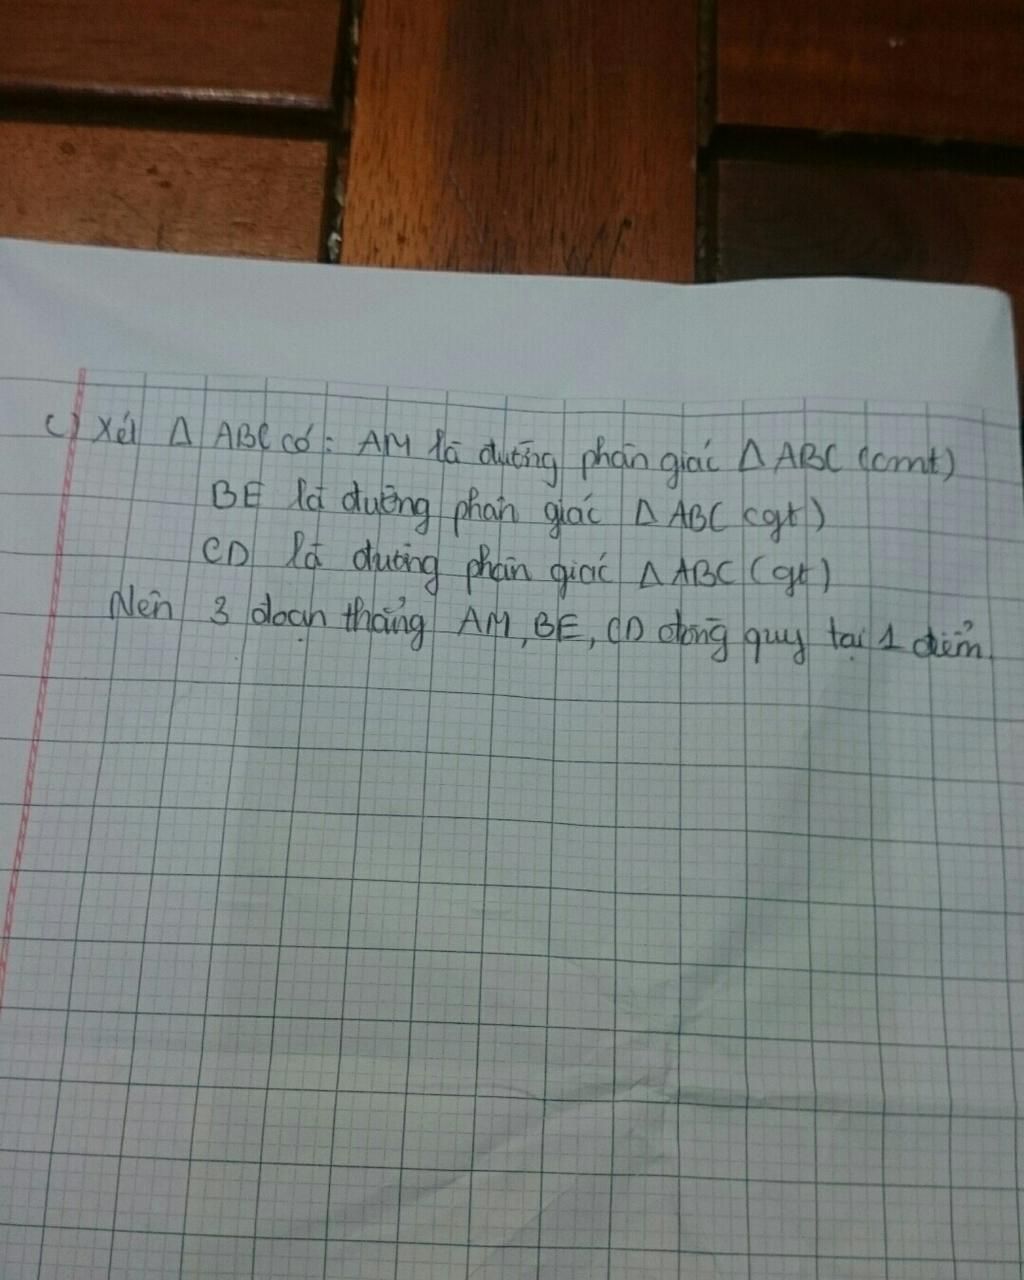 c) Xét Δ ABC có: AM là đường phân giác Δ ABC (cmt)
BE là đường phân giác Δ ABC (gt)
CD là đường phân giác Δ ABC (gt)
Nên 3 đoạn thẳng AM, BE, CD đồng quy tại 1 điểm.